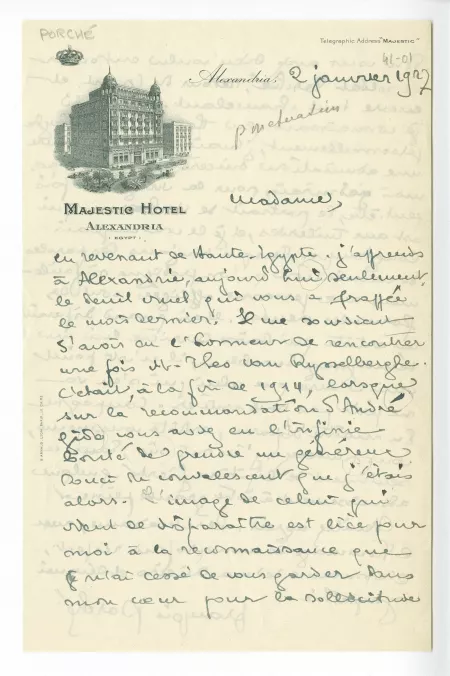 PORCHÉ
Telegraphic Address "MAJESTIC"
Alexandria, 2 janvier 1927
ponctuation
MAJESTIC HOTEL
ALEXANDRIA
EGYPT
Madame,
en revenant de Haute-Egypte, j'apprends
à Alexandrie, aujourd'hui seulement,
le deuil cruel qui vous a frappée
le mois dernier. Il me souvient
d'avoir eu l'honneur de rencontrer
une fois M. Theo van Rysselberghe.
C'était à la fin de 1914, lorsque
sur la recommandation d'André
Gide vous avez eu l'infinie
bonté de prendre un généreux
souci du convalescent que j'étais
alors. L'image de celui qui
vient de disparaître est liée pour
moi à la reconnaissance que
je n'ai cessé de vous garder dans
mon cœur pour la sollicitude